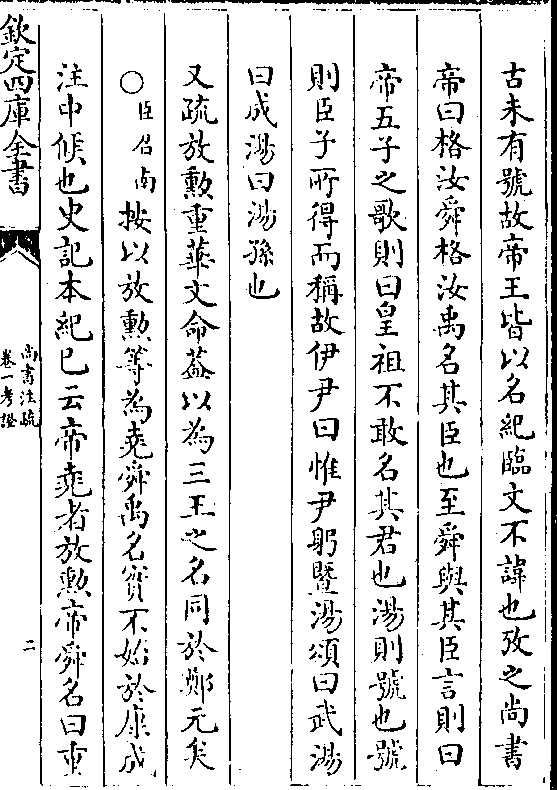 古未有號故帝王皆以名紀臨文不諱也攷之尚書
帝曰格汝舜格汝禹名其臣也至舜與其臣言則曰
帝五子之歌則曰皇祖不敢名其君也湯則號也號
則臣子所得而稱故伊尹曰惟尹躬暨湯頌曰武湯
曰成湯曰湯孫也
又疏放勲重華文命葢以為三王之名同於鄭元矣
○臣召南按以放勲等為堯舜禹名實不始於康成
注中候也史記本紀已云帝堯者放勲帝舜名曰重
欽定四庫全書
尚書注疏
卷一考證
二